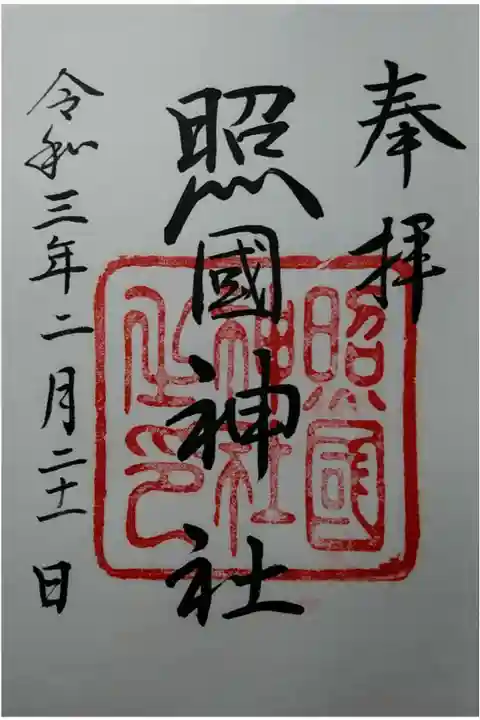 奉拝
照國神社
照國神社之印
令和三年二月二十一日